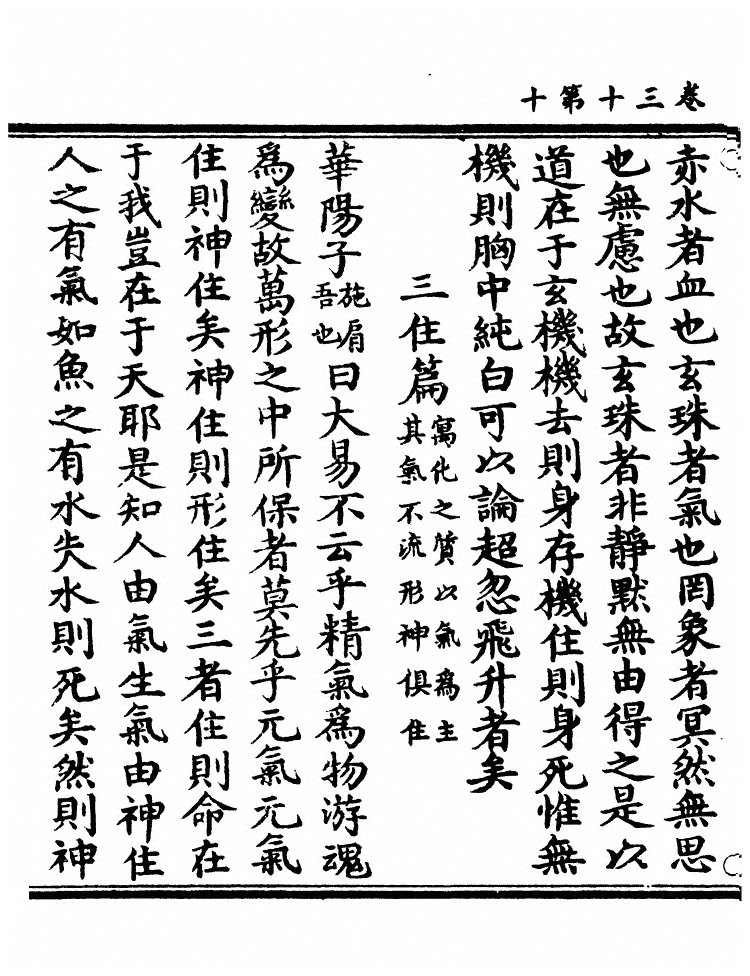 卷三十第十
赤水者血也玄珠者氣也罔象者冥然無思
也無慮也故玄珠者非靜默無由得之是以
道在于玄機機去則身存機住則身死惟無
機則胸中純白可以論超忽飛升者矣
三住篇寓化之質以氣爲主其氣不流形神俱住
華陽子施肩吾也曰大易不云乎精氣爲物游魂
爲變故萬形之中所保者莫先乎元氣元氣
住則神住矣神住則形住矣三者住則命在
于我豈在于天耶是知人由氣生氣由神住
人之有氣如魚之有水失水則死矣然則神